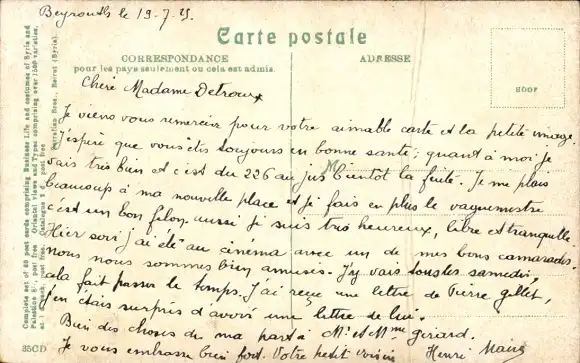 Beyrouth le 19-7-25.
Carte postale
CORRESPONDANCE
pour les pays seulement ou cela est admis.
ADRESSE
Chère Madame Detroux
Je viens vous remercier pour votre aimable carte et la petite image
J'espère que vous êtes toujours en bonne santé; quant à moi je
vais très bien et c'est du 226 au jus bientôt la fuite. Je me plais
beaucoup à ma nouvelle place et je fais en plus le vaguemestre
c'est un bon filon aussi je suis très heureux, libre et tranquille
Hier soir j'ai été au cinéma avec un de mes bons camarades
nous nous sommes bien amusés. J'y vais tous les samedis,
cela fait passer le temps. J'ai reçu une lettre de Pierre gillet,
j'en étais surpris d'avoir une lettre de lui.
Bien des choses de ma part à Mr et Mme Girard.
Je vous embrasse bien fort. Votre petit voisin Henri
Complete set of 35 post cards comprising Business Life and costumes of Syria and
Palestine post free Oriental views and Types comprising over 1500 varieties.
post free
Bros., Beirut (Syria).
35CD